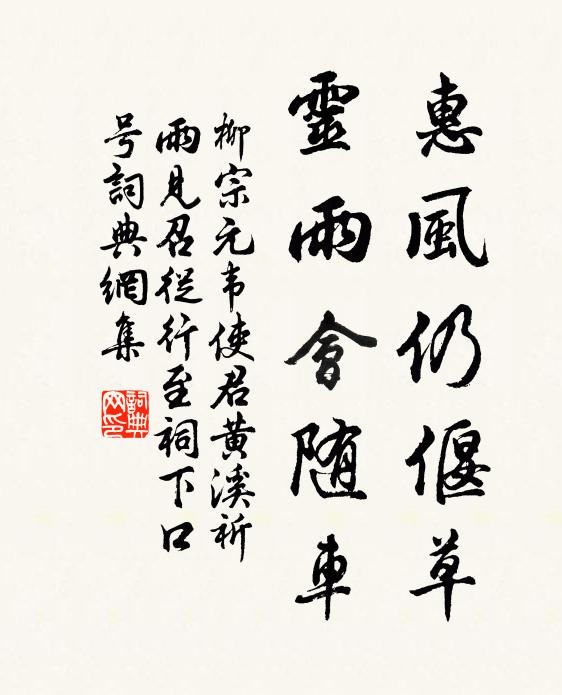 惠風仍偃草
靈雨會随車
柳宗元韦使君黄溪祈
雨見召從行至祠下口
号詞典網集
詞典网印